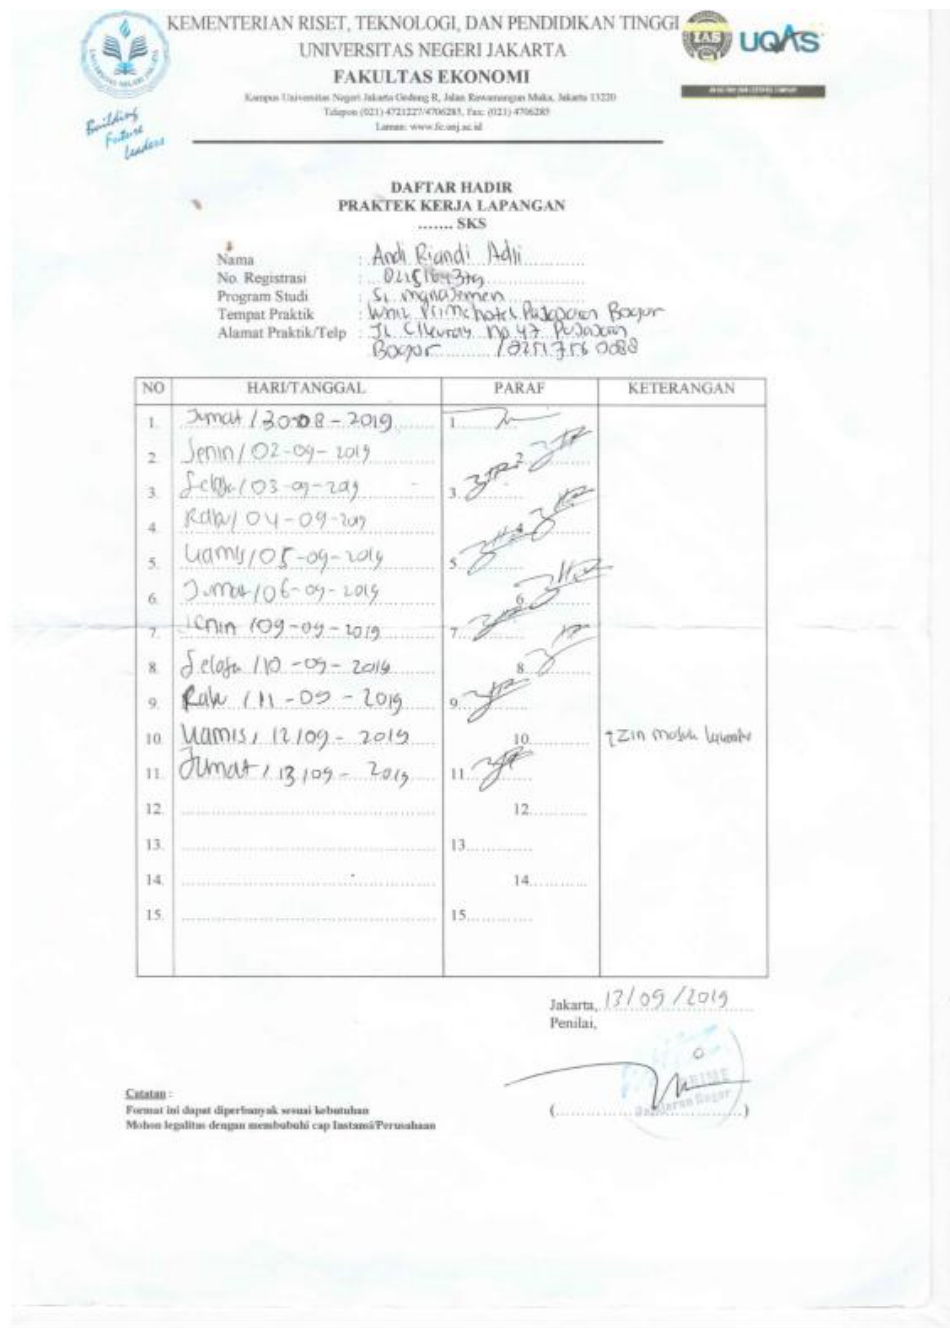 KEMENTERIAN RISET, TEKNOLOGI, DAN PENDIDIKAN TINGGI
UNIVERSITAS NEGERI JAKARTA
FAKULTAS EKONOMI
Kampus Universitas Negeri Jakarta Gedung R, Jalan Rawamangun Muka, Jakarta 13220
Telepon (021) 4721227/4706285, Fax: (021) 4706285
Laman: www.fe.unj.ac.id
IAS
UQAS
Building
Future
Leaders
DAFTAR HADIR
PRAKTEK KERJA LAPANGAN
....... SKS
Nama : Andi Riandi Adli
No. Registrasi :
Program Studi : S1 manajemen
Tempat Praktik : Primehotel Pajajaran Bogor
Alamat Praktik/Telp : JL. No 47 Pajajaran
Bogor
NO HARI/TANGGAL PARAF KETERANGAN
1. Jumat / 30-08-2019 1.
2. Senin / 02-09-2019 2.
3. Selasa / 03-09-2019 3.
4. Rabu / 04-09-2019 4
5. Kamis / 05-09-2019 5.
6. Jumat / 06-09-2019 6
7. Senin / 09-09-2019 7.
8. Selasa / 10-09-2019 8.
9. Rabu / 11-09-2019 9.
10. Kamis, 12/09-2019 10. izin masuk
11. Jumat, 13/09-2019 11.
12. 12.
13. 13.
14. 14.
15. 15.
Jakarta, 13/09/2019
Penilai,
PRIME
Pajajaran Bogor
(....................)
Catatan :
Format ini dapat diperbanyak sesuai kebutuhan
Mohon legalitas dengan membubuhi cap Instansi/Perusahaan